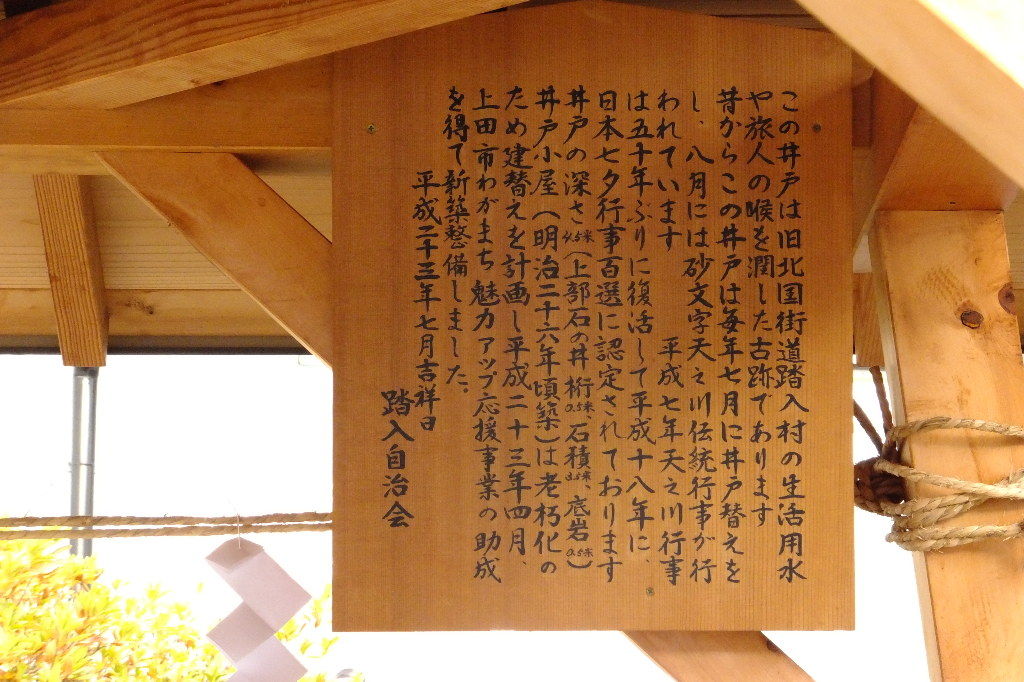 この井戸は旧北国街道踏入村の生活用水
や旅人の喉を潤した古跡であります
昔からこの井戸は毎年七月に井戸替えを
し、八月には砂文字天之川伝統行事が行
われています　平成七年天之川行事
は五十年ぶりに復活して平成十八年に、
日本七夕行事百選に認定されております
井戸の深さ4.5米(上部石の井桁0.5米、石積3.5米、底岩0.5米)
井戸小屋(明治二十六年頃築)は老朽化の
ため建替えを計画し平成二十三年四月、
上田市わがまち魅力アップ応援事業の助成
を得て新築整備しました。
平成二十三年七月吉祥日
踏入自治会